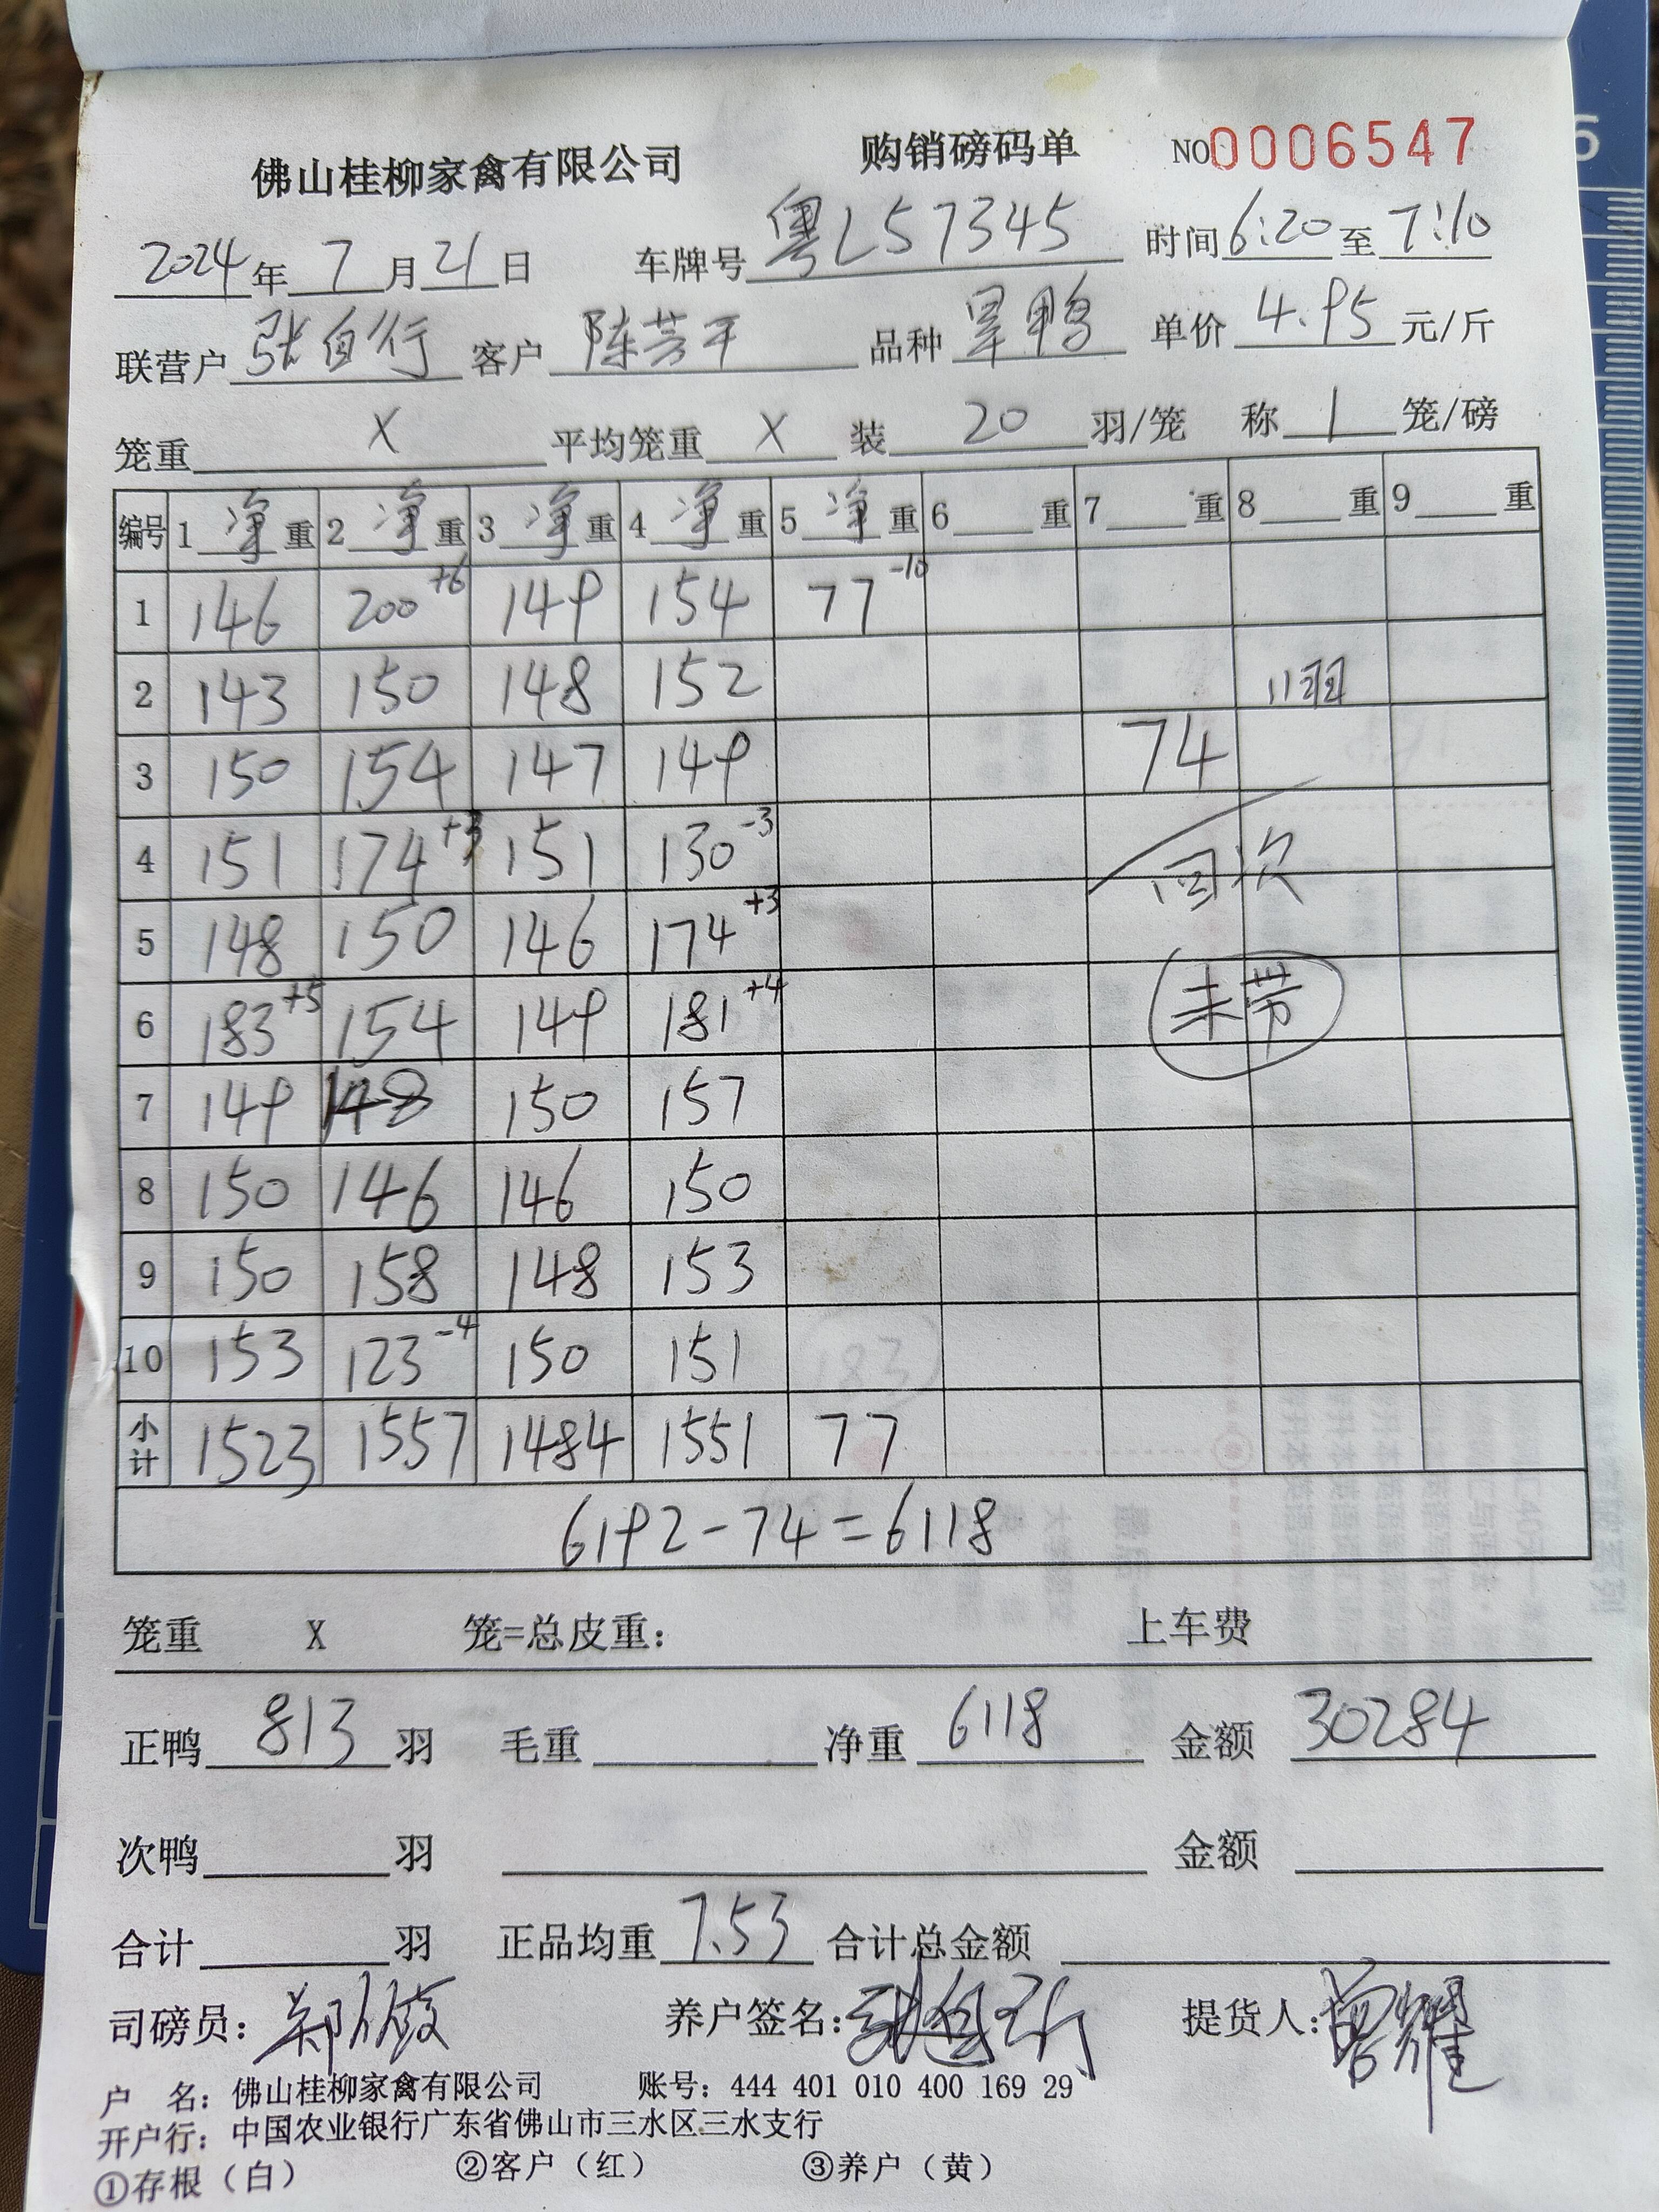 佛山桂柳家禽有限公司 购销磅码单 NO0006547
2024年7月21日 车牌号粤L57345 时间6:20至7:10
联营户张自行 客户陈芳平 品种旱鸭 单价4.95元/斤
笼重X 平均笼重X 装20羽/笼 称1笼/磅
编号 1净重 2净重 3净重 4净重 5净重 6重 7重 8重 9重
1 146 200+6 149 154 77-10
2 143 150 148 152 11羽
3 150 154 147 149 74
4 151 174+3 151 130-3 回次
5 148 150 146 174+3
6 183+5 154 149 181+4 未带
7 149 148 150 157
8 150 146 146 150
9 150 158 148 153
10 153 123-4 150 151
小计 1523 1557 1484 1551 77
6192-74=6118
笼重 X 笼=总皮重: 上车费
正鸭813羽 毛重 净重6118 金额30284
次鸭 羽 金额
合计 羽 正品均重7.53 合计总金额
司磅员: 养户签名: 提货人:曾耀
户 名: 佛山桂柳家禽有限公司 账号: 444 401 010 400 169 29
开户行: 中国农业银行广东省佛山市三水区三水支行
①存根(白) ②客户(红) ③养户(黄)